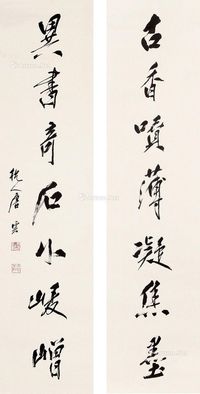 古香噴薄凝焦墨
異書奇石小崚嶒
杭人唐雲